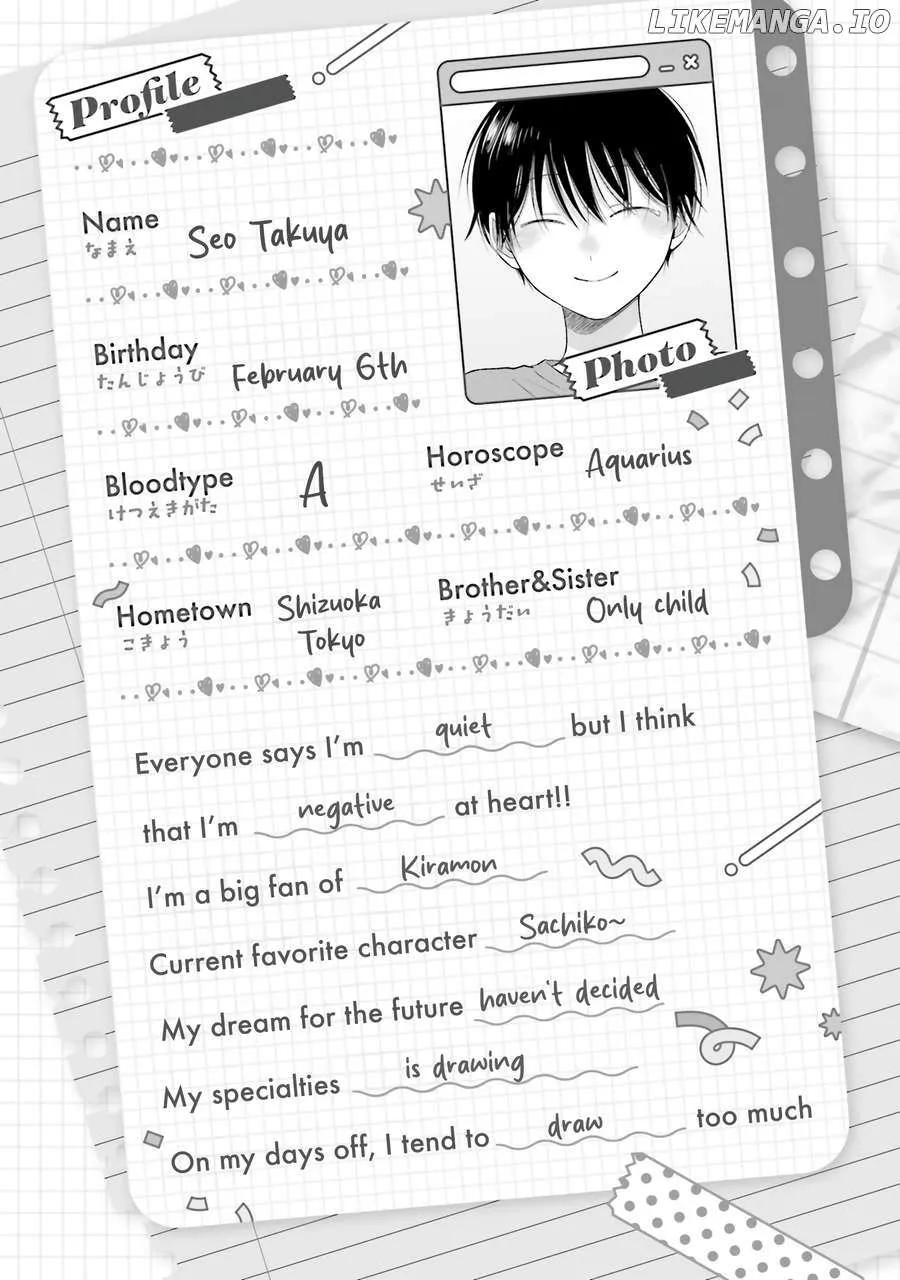 LIKEMANGA.IO
Profile
Name
なまえ
Seo Takuya
Birthday
たんじょうび
February 6th
Photo
Bloodtype
けつえきがた
A
Horoscope
せいざ
Aquarius
Hometown
こきょう
Shizuoka
Tokyo
Brother&Sister
きょうだい
Only child
Everyone says I'm quiet but I think
that I'm negative at heart!!
I'm a big fan of Kiramon
Current favorite character Sachiko~
My dream for the future haven't decided
My specialties is drawing
On my days off, I tend to draw too much